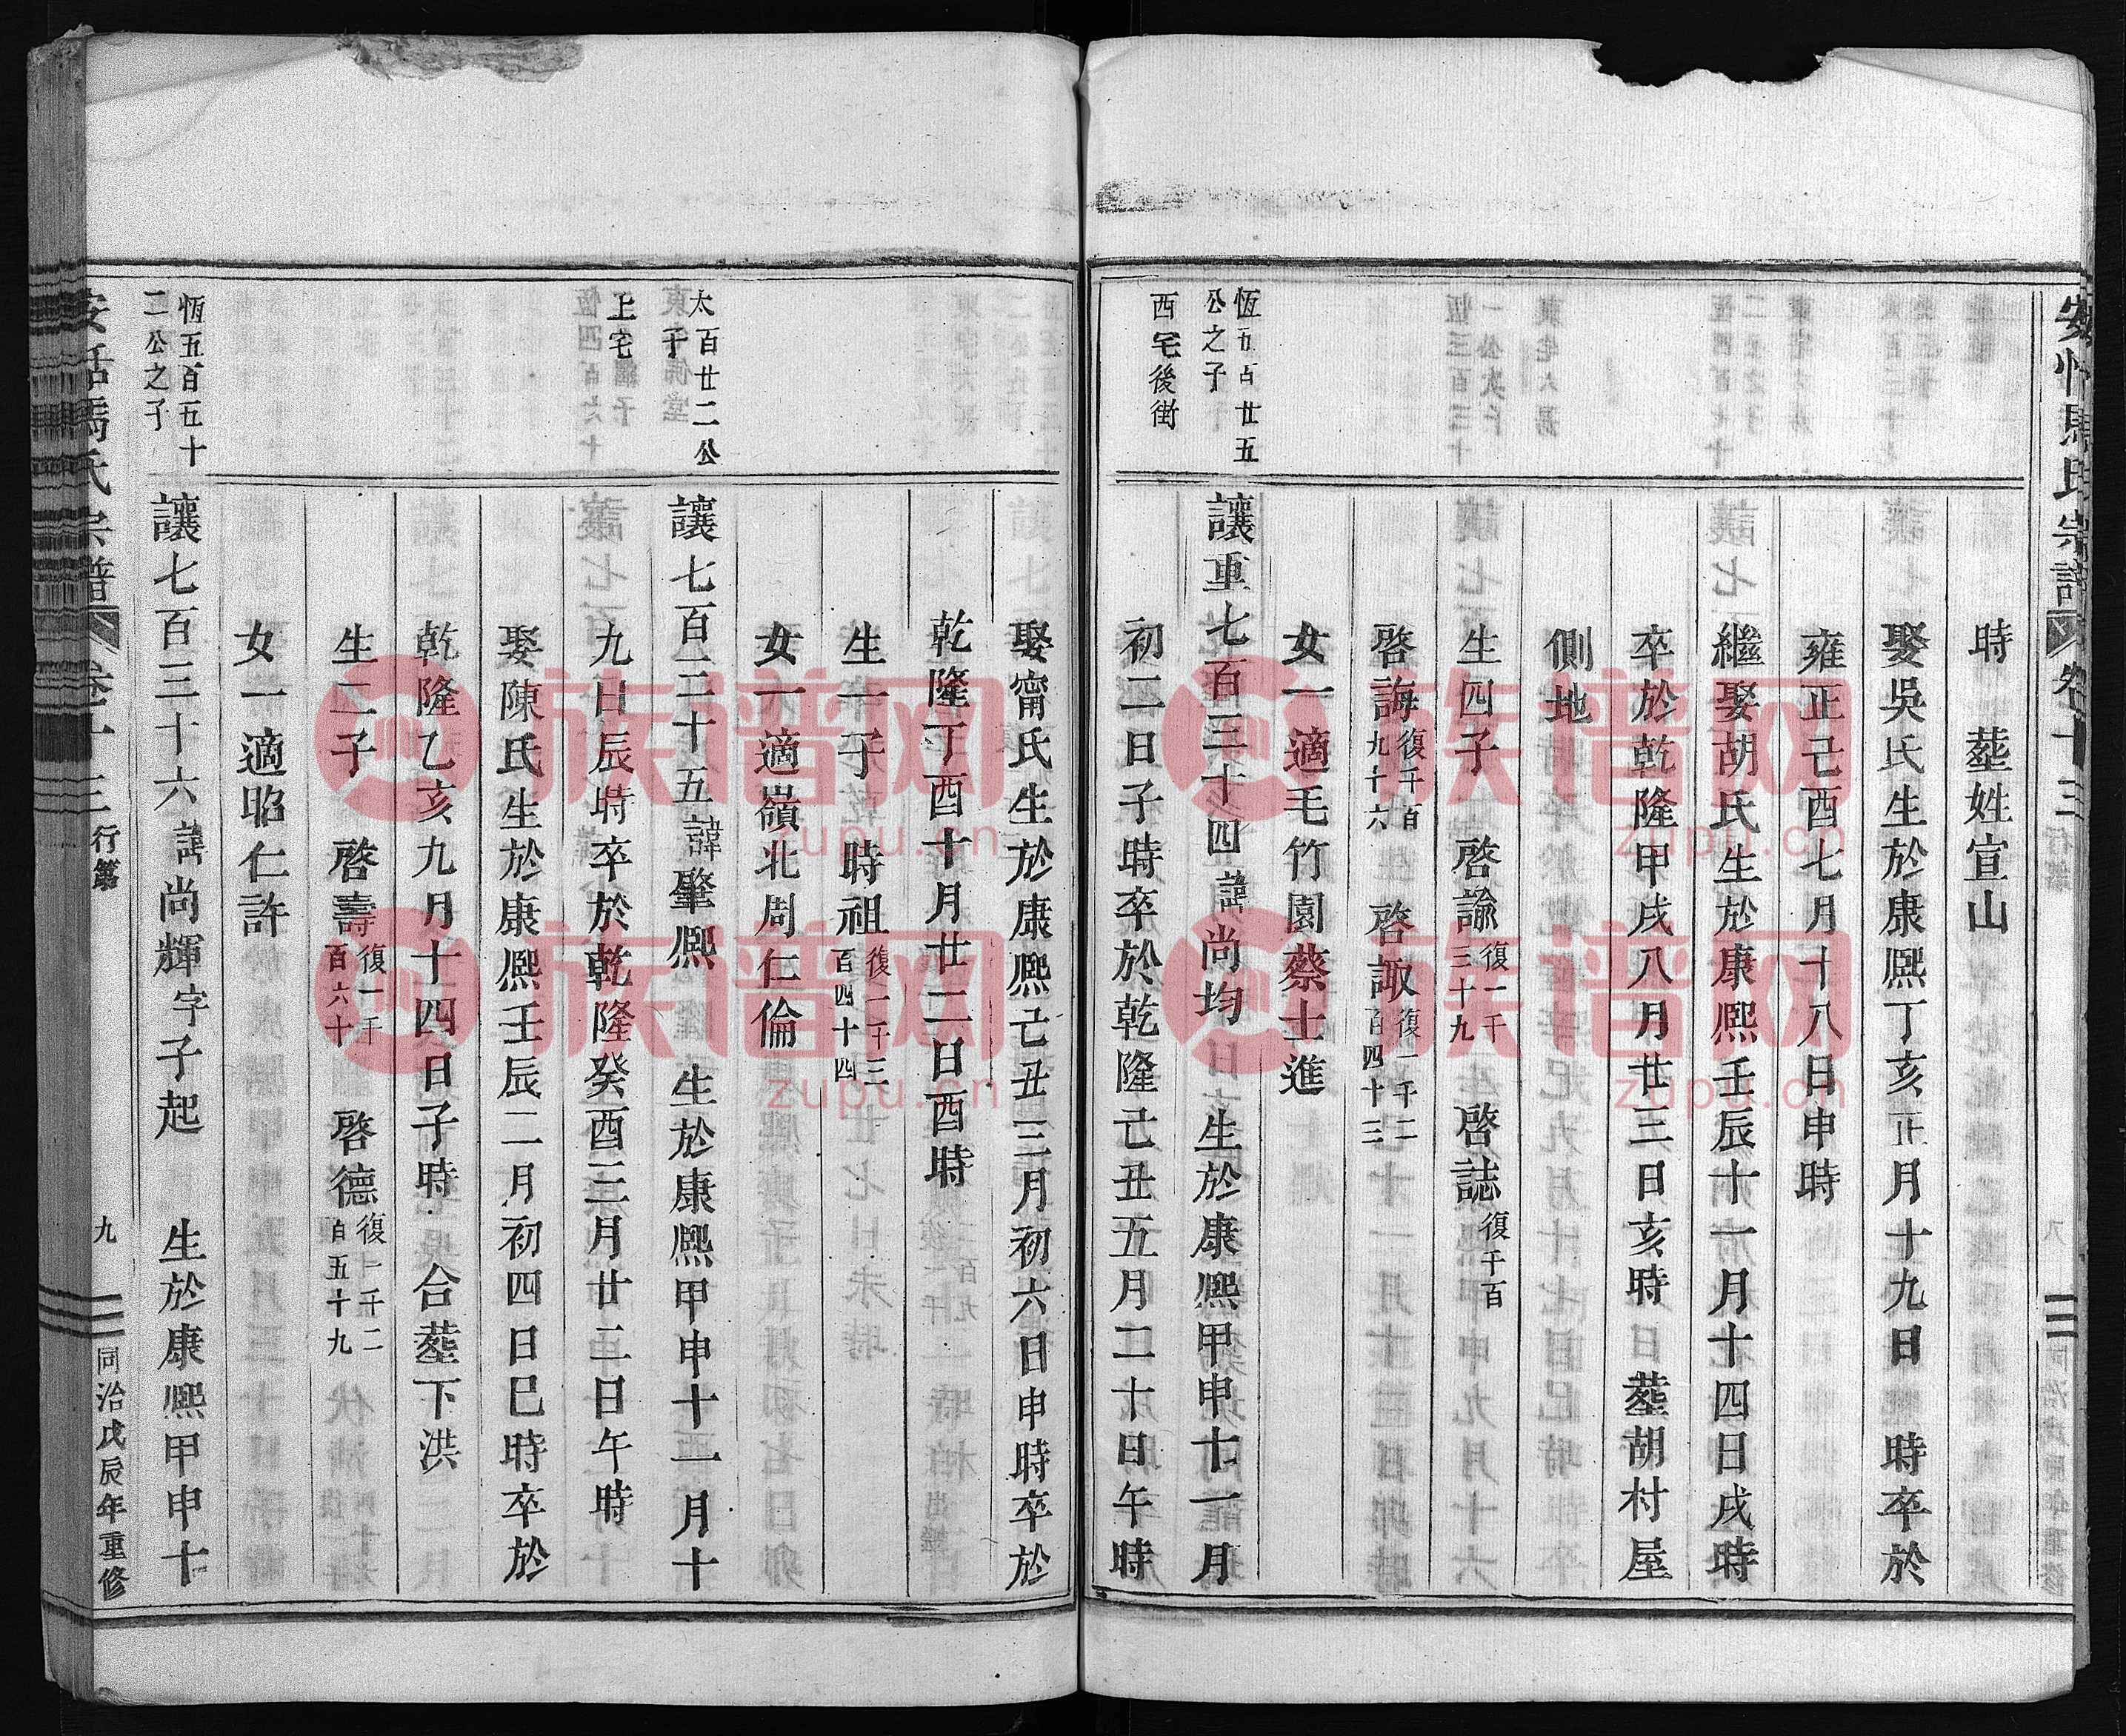 時　塟姓宣山
娶吳氏生於康熙丁亥正月十九日　時卒於
雍正己酉七月十八日申時
繼娶胡氏生於康熙壬辰十一月十四日戌時
卒於乾隆甲戌八月廿三日亥時　塟胡村屋
側地
生四子　啓諭復一千三十九　啓誌復千百
啓誨復千百九十六　啓諏復一千二百四十二
女一適毛竹園蔡士進
恆五百廿五
公之子
西宅後街
讓重七百三十四諱尚均　生於康熙甲申十一月
初二日子時卒於乾隆己丑五月二十日午時
娶甯氏生於康熙己丑三月初六日申時卒於
乾隆丁酉十月廿二日酉時
生一子　時祖復一千三百四十四
女一適嶺北周仁倫
太百廿二公
子
上宅
讓七百二十五諱肇熙　生於康熙甲申十一月十
九日辰時卒於乾隆癸酉三月廿二日午時
娶陳氏生於康熙壬辰二月初四日巳時卒於
乾隆乙亥九月十四日子時　合塟下洪
生二子　啓壽復一千百六十　啓德復一千二百五十九
女一適昭仁許
恆五百五十
二公之子
讓七百三十六諱尚輝字子起　生於康熙甲申十
宗譜
卷十三
行第
九
同治戊辰年重修
族谱网
zupu.cn
族谱网
zupu.cn
族谱网
zupu.cn
族谱网
zupu.cn